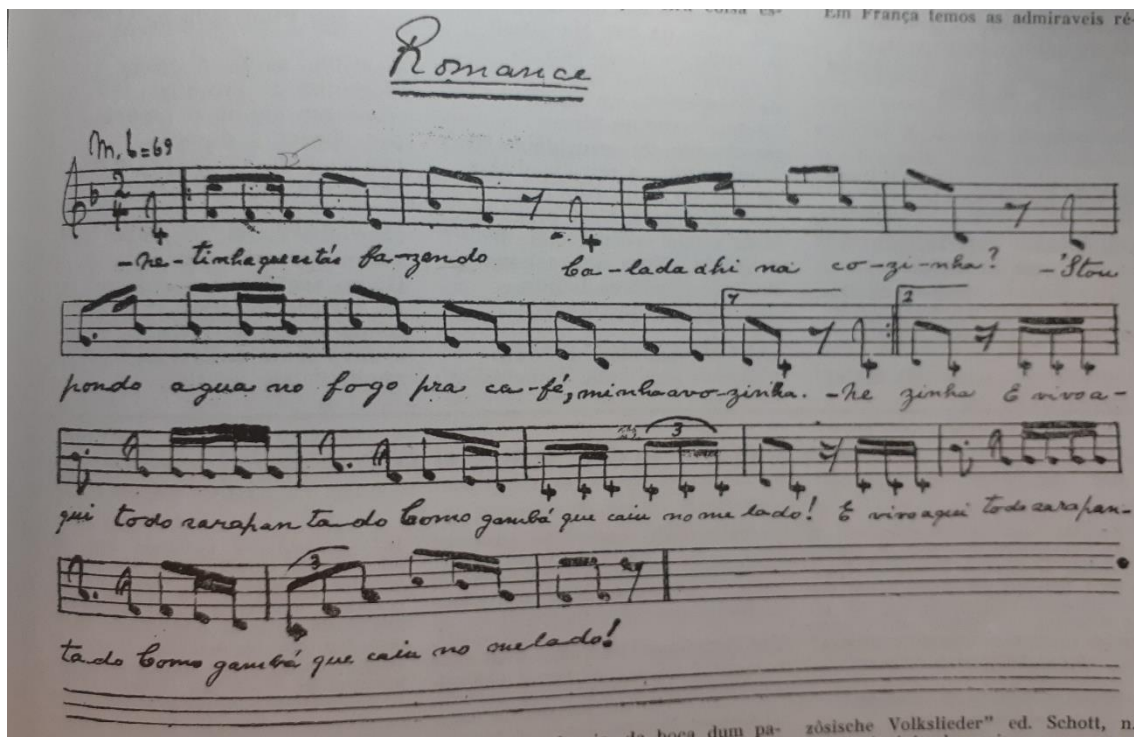 Em França temos as admiraveis ré-
Romance
M. = 69
2
4
-ne-tinha que estás fa-zendo Ca-lada ahi na co-zi-nha? -'Stou
1 2
pondo agua no fogo pra ca-fé, minha avo-zinha. -ne zinha E vivo a-
3
qui todo sarapan ta-do Como gambá que caiu no me lado! E vivo aqui todo sarapan-
3
ta do Como gambá que caiu no melado!
boca dum pa- zösische Volkslieder" ed. Schott, n.